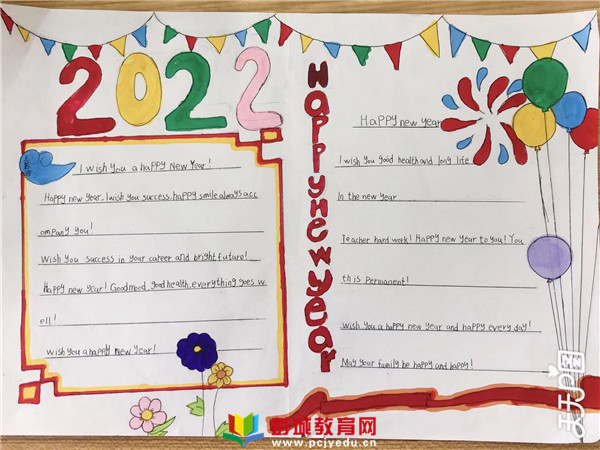 2022
I wish you a happy New Year!
Happy new year. I wish you success, happy smile always acc
ompany you!
Wish you success in your career and bright future!
Happy new year! Good mood, good health, everything goes w
ell!
wish you a happy New Year!
Happy new year
Happy new year
I wish you good health and long life
In the new year
Teacher hard work! Happy new year to you! You
this permanent!
wish you a happy new year and happy every day!
May year family be happy and happy!
教育网
www.pcjyedu.cn